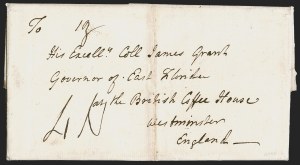 To
His Excell.y Coll James Grant
Governor of East Florida
at the British Coffee House
Westminster
England